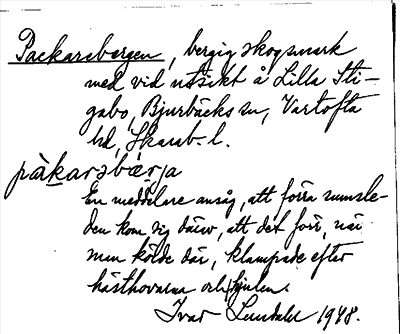 Packarebergen, bergig skogsmark
med vid utsikt å Lilla Sti-
gabo, Bjurbäcks sn, Vartofta
hd, Skarab. l.
pàkarəbæ̀rja
En meddelare ansåg, att förra namnsle-
den kom sig därav, att det förr, när
man körde där, klampade efter
hästhovarna och hjulen.
Ivar Lundahl 1948.